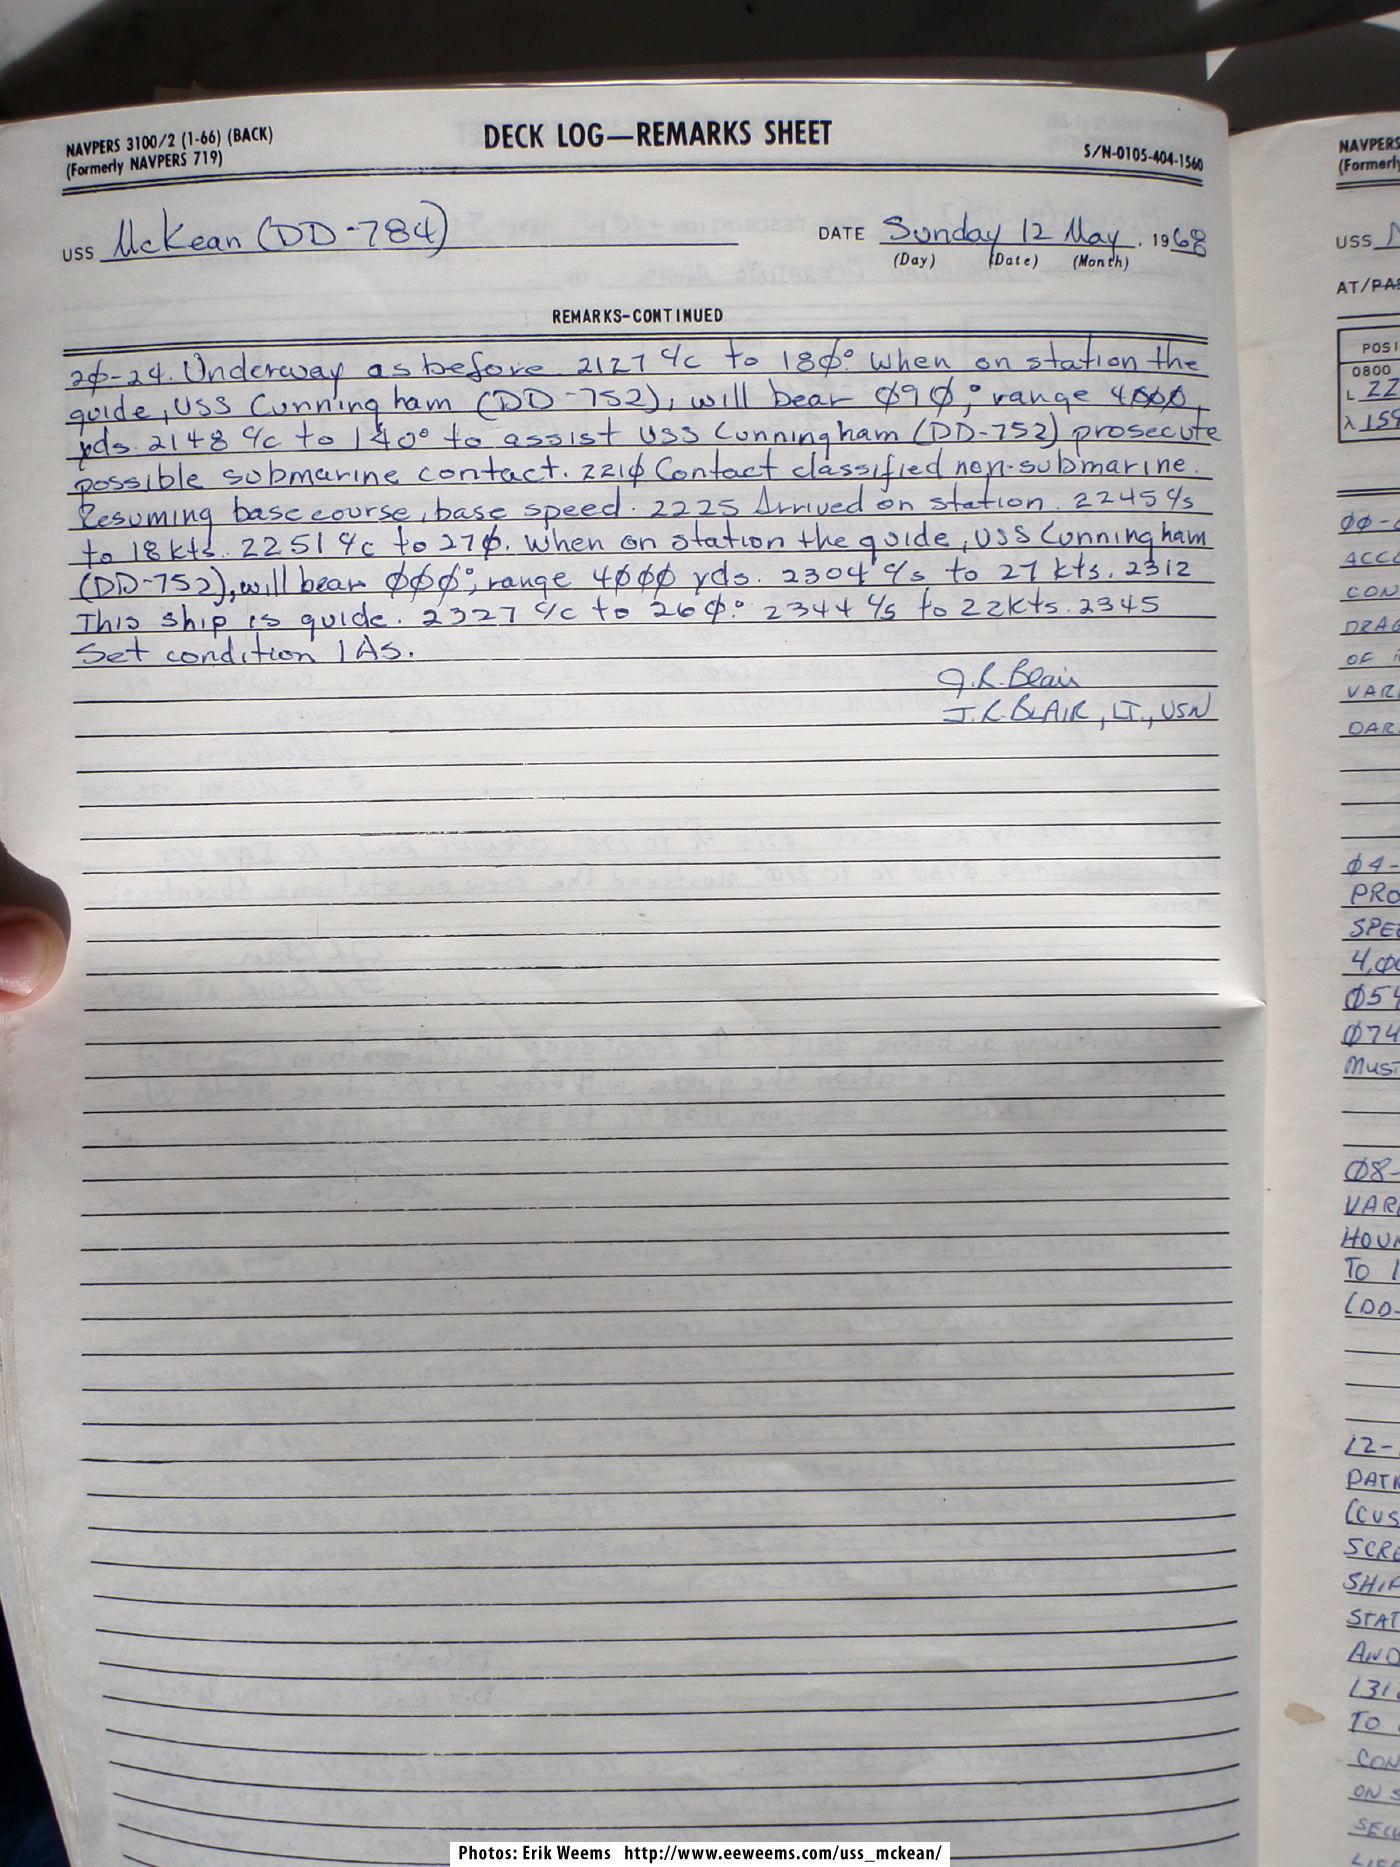 NAVPERS 3100/2 (1-66) (BACK)
(Formerly NAVPERS 719)
DECK LOG—REMARKS SHEET
S/N-0105-404-1560
USS McKean (DD-784)
DATE Sunday 12 May, 1968
(Day) (Date) (Month)
REMARKS-CONTINUED
2Ø-24. Underway as before. 2127 c/c to 18Ø°. When on station the
guide, USS Cunningham (DD-752), will bear Ø9Ø°, range 4ØØØ
yds. 2148 c/c to 14Ø° to assist USS Cunningham (DD-752) prosecute
possible submarine contact. 221Ø Contact classified non-submarine.
Resuming base course, base speed. 2225 Arrived on station. 2245 c/s
to 18 kts. 2251 c/c to 27Ø. When on station the guide, USS Cunningham
(DD-752), will bear ØØØ°, range 4ØØØ yds. 2304 c/s to 27 kts. 2312
This ship is guide. 2327 c/c to 26Ø°. 2344 c/s to 22kts. 2345
Set condition 1AS.
J.R. Blair
J.R. BLAIR, LT., USN
NAVPERS
(Formerly
USS
AT/PAS
POSI
0800
L 22
λ 159
ØØ-
ACCO
CON
DRAG
OF
VARI
DAR
Ø4-
PRO
SPEE
4,ØØ
Ø54
Ø74
MUST
Ø8-
VARI
HOUR
TO 1
(DD-
12-
PATR
(CUS
SCRE
SHIP
STAT
AND
131
TO
CON
ON S
SECU
Photos: Erik Weems http://www.eeweems.com/uss_mckean/